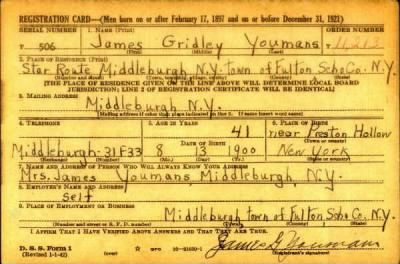 REGISTRATION CARD—(Men born on or after February 17, 1897 and on or before December 31, 1921)
SERIAL NUMBER 1. NAME (Print) ORDER NUMBER
T 506 James Gridley Youmans 11,213
(First) (Middle) (Last)
2. PLACE OF RESIDENCE (Print)
Star Route Middleburgh N.Y. town of Fulton Scho Co. N.Y.
(Number and street) (Town, township, village, or city) (County) (State)
[THE PLACE OF RESIDENCE GIVEN ON THE LINE ABOVE WILL DETERMINE LOCAL BOARD
JURISDICTION; LINE 2 OF REGISTRATION CERTIFICATE WILL BE IDENTICAL]
3. MAILING ADDRESS
Middleburgh N.Y.
[Mailing address if other than place indicated on line 2. If same insert word same]
4. TELEPHONE 5. AGE IN YEARS 6. PLACE OF BIRTH
41 near Preston Hollow
DATE OF BIRTH (Town or county)
Middleburgh 31F33 8 13 1900 New York
(Exchange) (Number) (Mo.) (Day) (Yr.) (State or country)
7. NAME AND ADDRESS OF PERSON WHO WILL ALWAYS KNOW YOUR ADDRESS
Mrs. James Youmans Middleburgh N.Y.
8. EMPLOYER'S NAME AND ADDRESS
Self
9. PLACE OF EMPLOYMENT OR BUSINESS
Middleburgh town of Fulton Scho Co. N.Y.
(Number and street or R. F. D. number) (Town) (County) (State)
I AFFIRM THAT I HAVE VERIFIED ABOVE ANSWERS AND THAT THEY ARE TRUE.
D. S. S. Form 1
(Revised 1-1-42) (over) GPO 16-21630-1 James G. Youmans
(Registrant's signature)